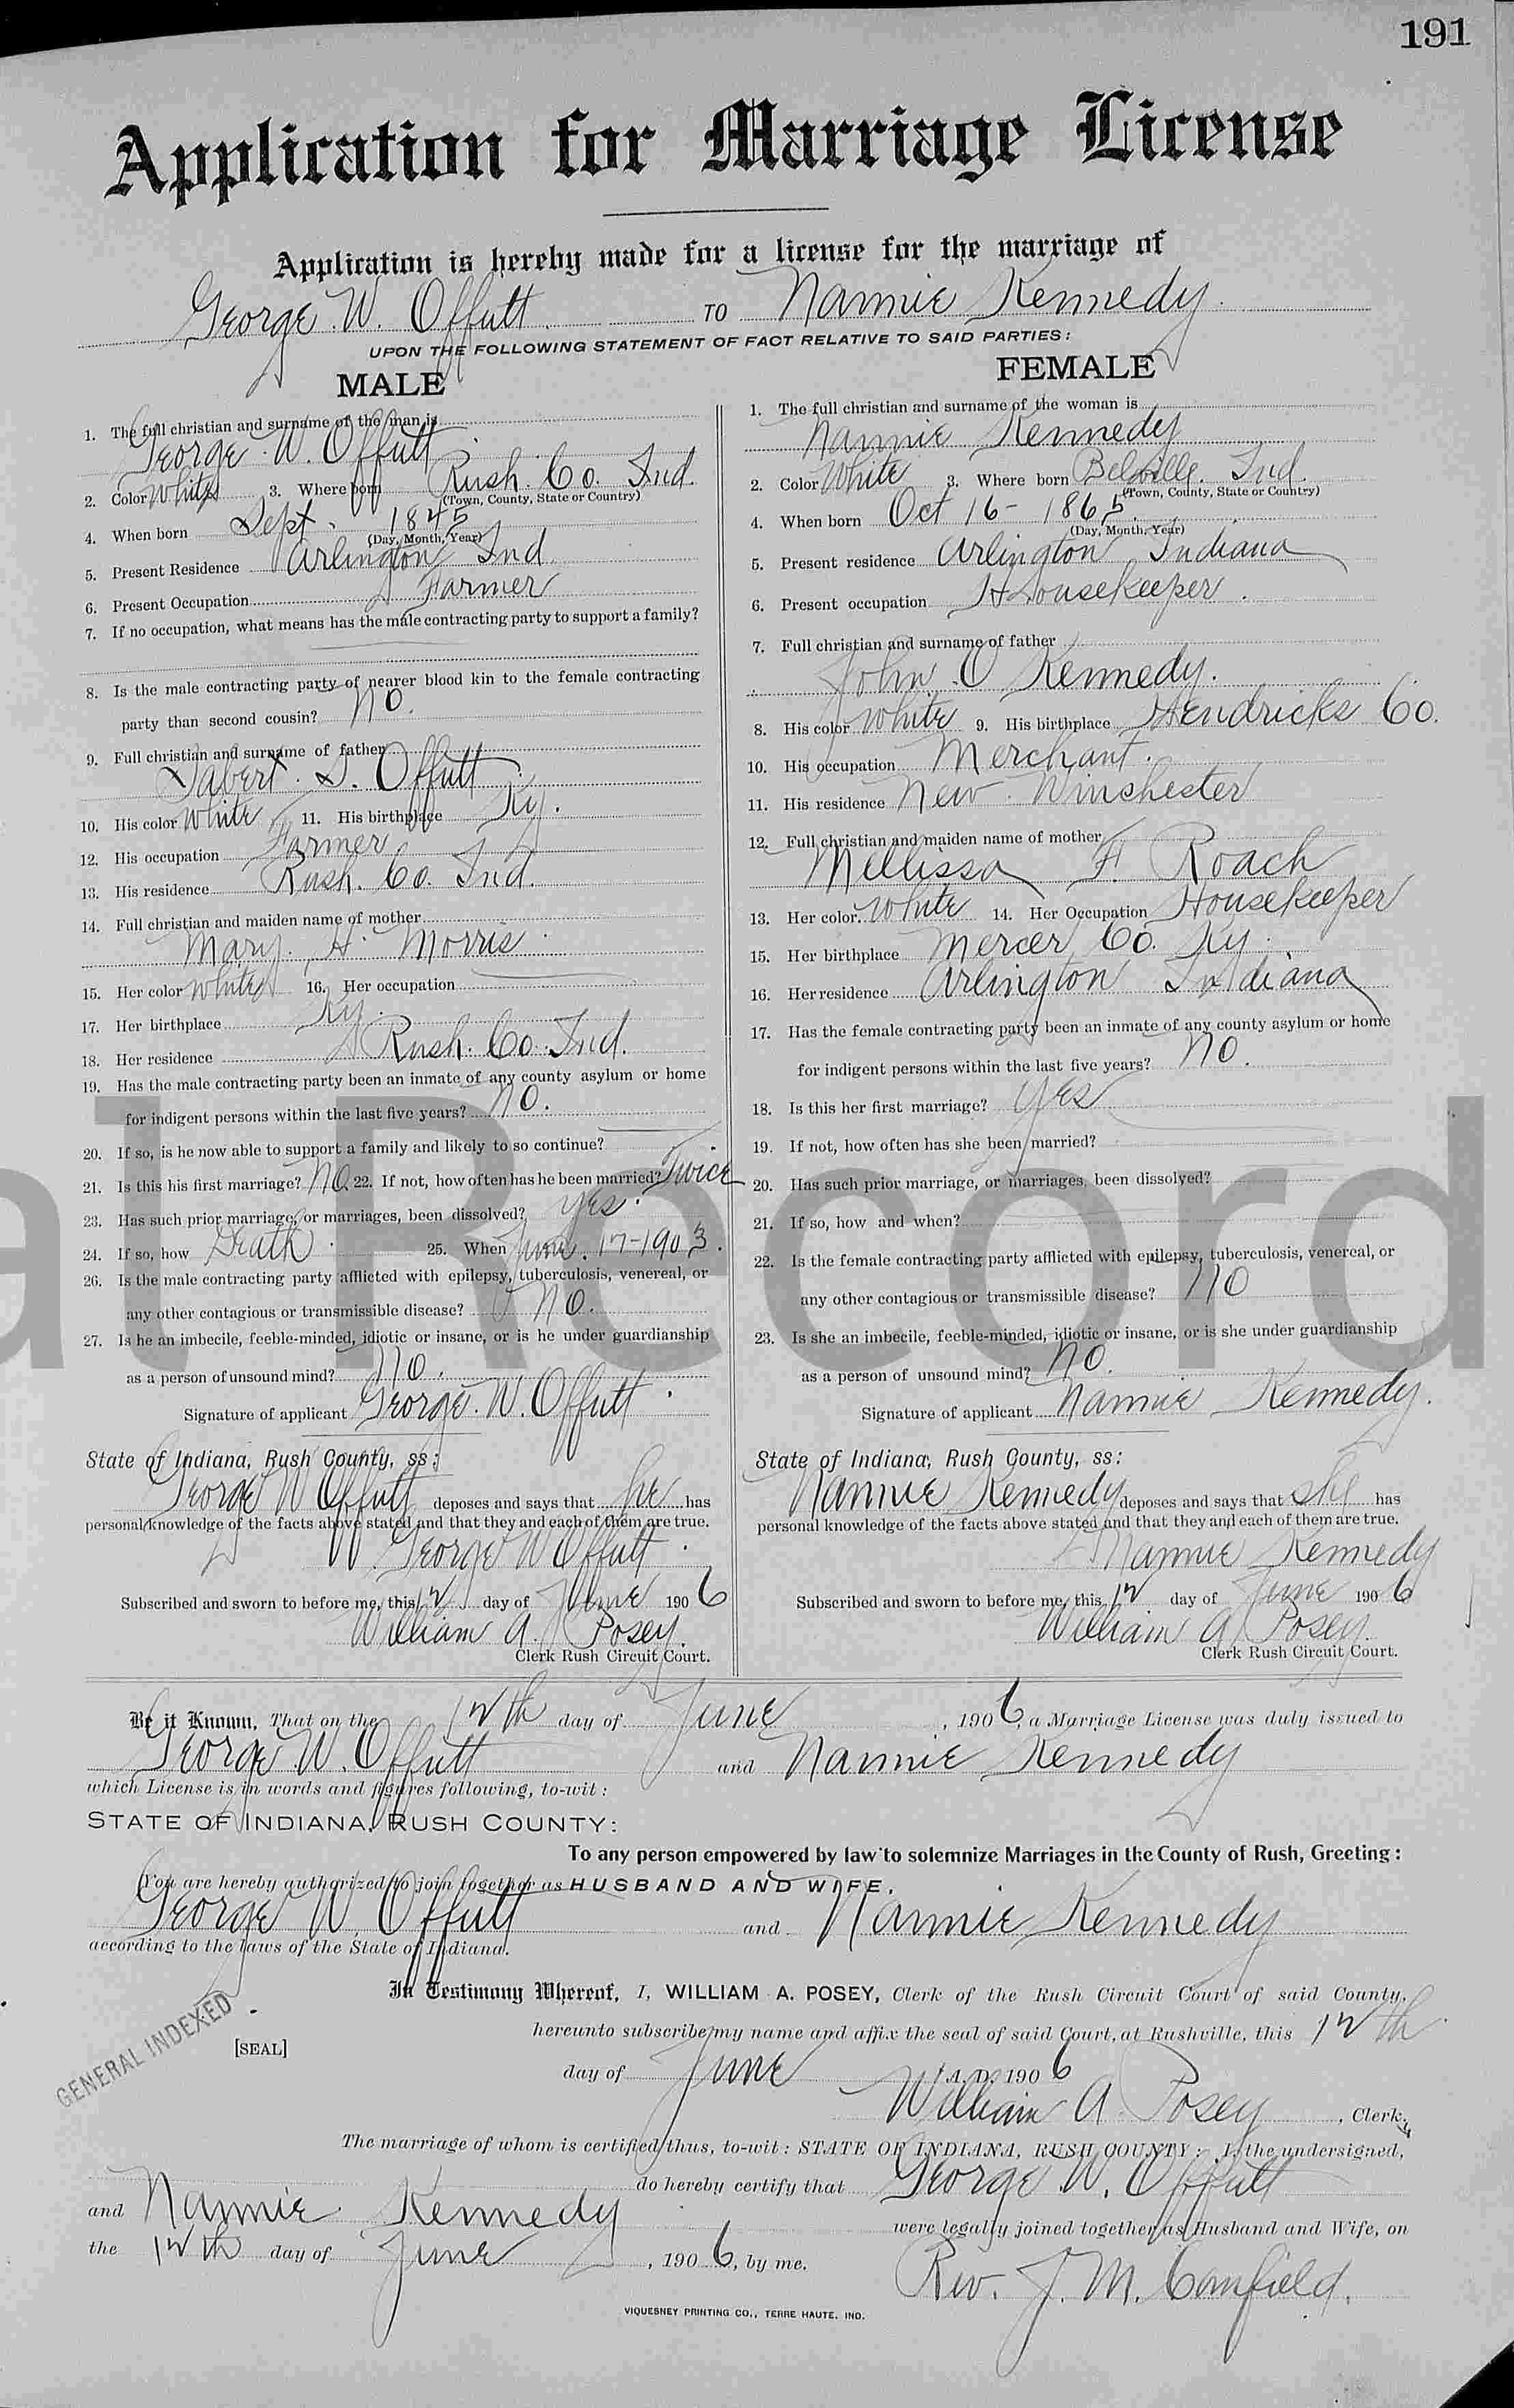 191
Application for Marriage License
Application is hereby made for a license for the marriage of
George W. Offutt TO Nannie Kennedy
UPON THE FOLLOWING STATEMENT OF FACT RELATIVE TO SAID PARTIES:
MALE
1. The full christian and surname of the man is
George W. Offutt
2. Color White 3. Where born Rush. Co. Ind.
(Town, County, State or Country)
4. When born Sept. 1845
(Day, Month, Year)
5. Present Residence Arlington Ind
6. Present Occupation Farmer
7. If no occupation, what means has the male contracting party to support a family?
8. Is the male contracting party of nearer blood kin to the female contracting
party than second cousin? no.
9. Full christian and surname of father
S. Offutt
10. His color White 11. His birthplace Ky.
12. His occupation Farmer
13. His residence Rush. Co. Ind.
14. Full christian and maiden name of mother
Mary. A. Morris
15. Her color White 16. Her occupation
17. Her birthplace Ky.
18. Her residence Rush. Co. Ind.
19. Has the male contracting party been an inmate of any county asylum or home
for indigent persons within the last five years? no.
20. If so, is he now able to support a family and likely to so continue?
21. Is this his first marriage? No 22. If not, how often has he been married? Twice
23. Has such prior marriage, or marriages, been dissolved? yes.
24. If so, how Death. 25. When June. 17-1903.
26. Is the male contracting party afflicted with epilepsy, tuberculosis, venereal, or
any other contagious or transmissible disease? no.
27. Is he an imbecile, feeble-minded, idiotic or insane, or is he under guardianship
as a person of unsound mind? no.
Signature of applicant George. W. Offutt.
State of Indiana, Rush County, ss:
George W Offutt deposes and says that he has
personal knowledge of the facts above stated and that they and each of them are true.
George W Offutt.
Subscribed and sworn to before me, this 12 day of June 1906
William A. Posey.
Clerk Rush Circuit Court.
FEMALE
1. The full christian and surname of the woman is
Nannie Kennedy
2. Color White 3. Where born Belville. Ind.
(Town, County, State or Country)
4. When born Oct 16- 1865.
(Day, Month, Year)
5. Present residence Arlington Indiana
6. Present occupation Housekeeper.
7. Full christian and surname of father
John O Kennedy.
8. His color White 9. His birthplace Hendricks Co.
10. His occupation Merchant.
11. His residence New Winchester
12. Full christian and maiden name of mother
Mellissa F. Roach
13. Her color. White 14. Her Occupation Housekeeper
15. Her birthplace Mercer Co. Ky.
16. Her residence Arlington Indiana
17. Has the female contracting party been an inmate of any county asylum or home
for indigent persons within the last five years? no.
18. Is this her first marriage? yes
19. If not, how often has she been married?
20. Has such prior marriage, or marriages, been dissolved?
21. If so, how and when?
22. Is the female contracting party afflicted with epilepsy, tuberculosis, venereal, or
any other contagious or transmissible disease? no
23. Is she an imbecile, feeble-minded, idiotic or insane, or is she under guardianship
as a person of unsound mind? no.
Signature of applicant Nannie Kennedy.
State of Indiana, Rush County, ss:
Nannie Kennedy deposes and says that she has
personal knowledge of the facts above stated and that they and each of them are true.
Nannie Kennedy
Subscribed and sworn to before me, this 12 day of June 1906
William A Posey.
Clerk Rush Circuit Court.
al Record
Be it Known, That on the 12th day of June, 1906, a Marriage License was duly issued to
George W. Offutt and Nannie Kennedy
which License is in words and figures following, to-wit:
STATE OF INDIANA, RUSH COUNTY:
To any person empowered by law to solemnize Marriages in the County of Rush, Greeting:
You are hereby authorized to join together as HUSBAND AND WIFE,
George W Offutt and Nannie Kennedy
according to the laws of the State of Indiana.
In Testimony Whereof, I, WILLIAM A. POSEY, Clerk of the Rush Circuit Court of said County,
hereunto subscribe my name and affix the seal of said Court, at Rushville, this 12th
GENERAL INDEXED
[SEAL]
day of June A. D. 1906
William A. Posey, Clerk.
The marriage of whom is certified thus, to-wit: STATE OF INDIANA, RUSH COUNTY: I, the undersigned,
do hereby certify that George W. Offutt
and Nannie Kennedy were legally joined together as Husband and Wife, on
the 12th day of June, 1906, by me.
Rev. J. M. Canfield.
VIQUESNEY PRINTING CO., TERRE HAUTE, IND.